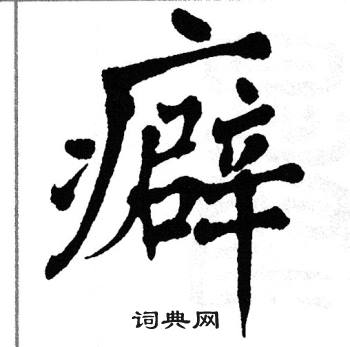 癖
词典网